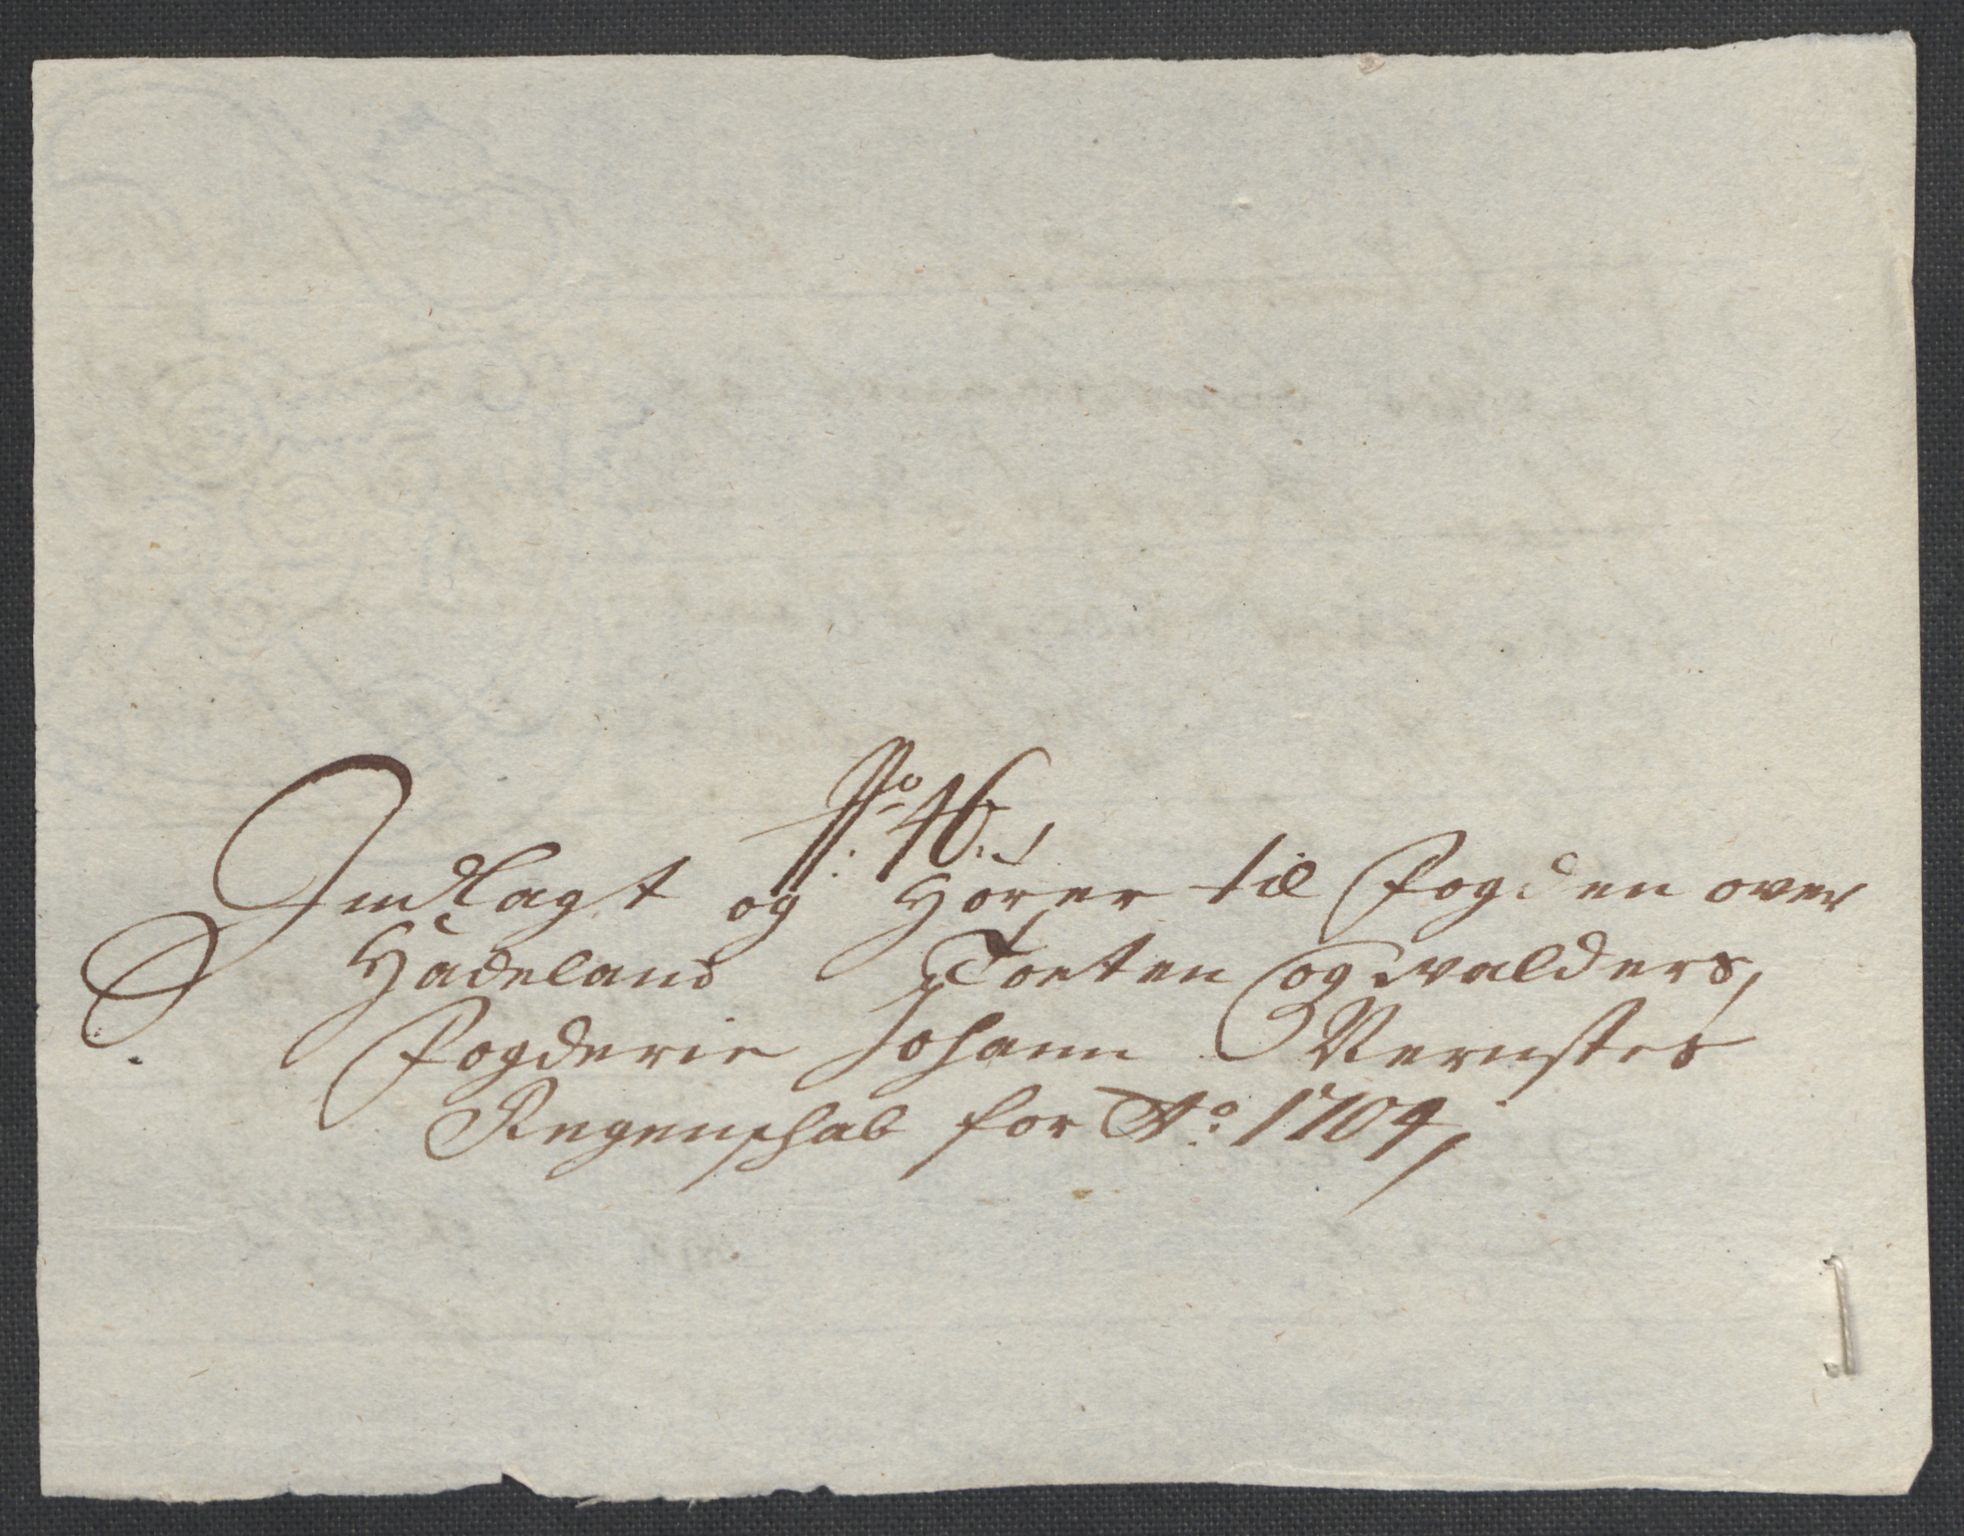 No: 46.
Indlagt og Hörer til Fogden over
Hadeland Toeten og walders,
Fogderie Johann Vernstes
Regenschab for Ao: 1704,